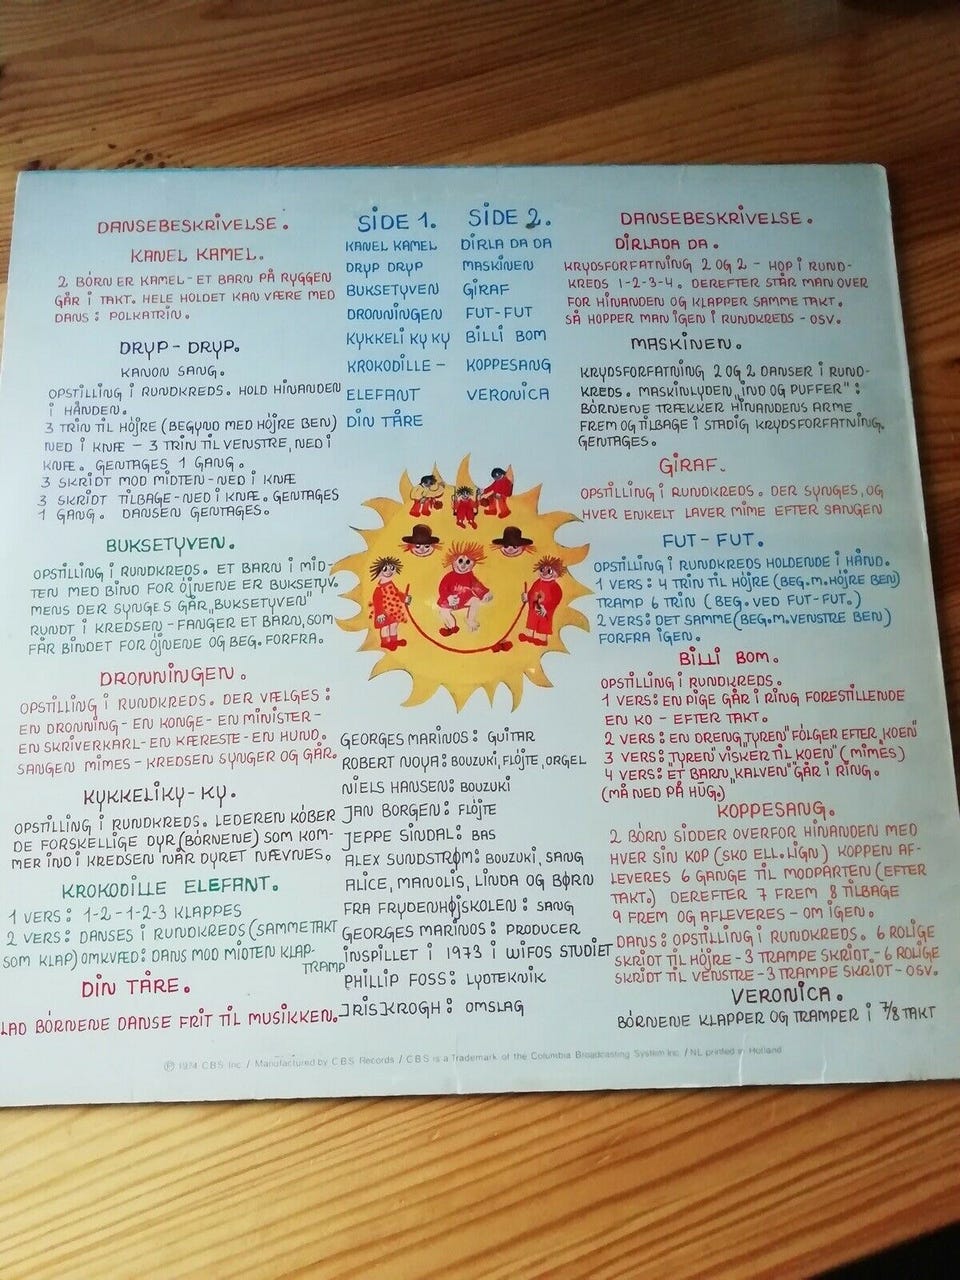 DANSEBESKRIVELSE.
KANEL KAMEL.
2 BÖRN ER KAMEL - ET BARN PÅ RYGGEN
GÅR I TAKT. HELE HOLDET KAN VÆRE MED
DANS: POLKATRIN.
DRYP-DRYP.
KANON SANG.
OPSTILLING I RUNDKREDS. HOLD HINANDEN
I HÅNDEN.
3 TRIN TIL HÖJRE (BEGYND MED HÖJRE BEN)
NED I KNÆ - 3 TRIN TIL VENSTRE, NED I
KNÆ. GENTAGES 1 GANG.
3 SKRIDT MOD MIDTEN - NED I KNÆ
3 SKRIDT TILBAGE - NED I KNÆ. GENTAGES
1 GANG. DANSEN GENTAGES.
BUKSETYVEN.
OPSTILLING I RUNDKREDS. ET BARN I MID-
TEN MED BIND FOR ÖJNENE ER BUKSETYV.
MENS DER SYNGES GÅR „BUKSETYVEN"
RUNDT I KREDSEN - FANGER ET BARN, SOM
FÅR BINDET FOR ÖJNENE OG BEG. FORFRA.
DRONNINGEN.
OPSTILLING I RUNDKREDS. DER VÆLGES:
EN DRONNING - EN KONGE - EN MINISTER -
EN SKRIVERKARL - EN KÆRESTE - EN HUND.
SANGEN MIMES - KREDSEN SYNGER OG GÅR.
KYKKELIKY-KY.
OPSTILLING I RUNDKREDS. LEDEREN KÖBER
DE FORSKELLIGE DYR (BÖRNENE) SOM KOM-
MER IND I KREDSEN NÅR DYRET NÆVNES.
KROKODILLE ELEFANT.
1 VERS: 1-2-1-2-3 KLAPPES
2 VERS: DANSES I RUNDKREDS (SAMME TAKT
SOM KLAP) OMKVÆD: DANS MOD MIDTEN KLAP-
TRAMP
DIN TÅRE.
LAD BÖRNENE DANSE FRIT TIL MUSIKKEN.
SIDE 1.
KANEL KAMEL
DRYP DRYP
BUKSETYVEN
DRONNINGEN
KYKKELI KY KY
KROKODILLE -
ELEFANT
DIN TÅRE
SIDE 2.
DIRLA DA DA
MASKINEN
GIRAF
FUT-FUT
BILLI BOM
KOPPESANG
VERONICA
GEORGES MARINOS: GUITAR
ROBERT NOYA: BOUZUKI, FLÖJTE, ORGEL
NIELS HANSEN: BOUZUKI
JAN BORGEN: FLÖJTE
JEPPE SINDAL: BAS
ALEX SUNDSTRØM: BOUZUKI, SANG
ALICE, MANOLIS, LINDA OG BØRN
FRA FRYDENHØJSKOLEN: SANG
GEORGES MARINOS: PRODUCER
INSPILLET I 1973 I WIFOS STUDIET
PHILLIP FOSS: LYDTEKNIK
IRIS KROGH: OMSLAG
DANSEBESKRIVELSE.
DIRLADA DA.
KRYDSFORFATNING 2 OG 2 - HOP I RUND-
KREDS 1-2-3-4. DEREFTER STÅR MAN OVER
FOR HINANDEN OG KLAPPER SAMME TAKT.
SÅ HOPPER MAN IGEN I RUNDKREDS - OSV.
MASKINEN.
KRYDSFORFATNING 2 OG 2 DANSER I RUND-
KREDS. MASKINLYDEN „IND OG PUFFER":
BÖRNENE TRÆKKER HINANDENS ARME
FREM OG TILBAGE I STADIG KRYDSFORFATNING.
GENTAGES.
GIRAF.
OPSTILLING I RUNDKREDS. DER SYNGES, OG
HVER ENKELT LAVER MIME EFTER SANGEN
FUT-FUT.
OPSTILLING I RUNDKREDS HOLDENDE I HÅND.
1 VERS: 4 TRIN TIL HÖJRE (BEG. M. HÖJRE BEN)
TRAMP 6 TRIN (BEG. VED FUT-FUT.)
2 VERS: DET SAMME (BEG. M. VENSTRE BEN)
FORFRA IGEN.
BILLI BOM.
OPSTILLING I RUNDKREDS.
1 VERS: EN PIGE GÅR I RING FORESTILLENDE
EN KO - EFTER TAKT.
2 VERS: EN DRENG „TYREN" FÖLGER EFTER „KOEN"
3 VERS: „TYREN" VISKER TIL „KOEN" (MIMES)
4 VERS: „ET BARN „KALVEN" GÅR I RING.
(MÅ NED PÅ HUG.)
KOPPESANG.
2 BÖRN SIDDER OVERFOR HINANDEN MED
HVER SIN KOP (SKO ELL. LIGN) KOPPEN AF-
LEVERES 6 GANGE TIL MODPARTEN (EFTER
TAKT.) DEREFTER 7 FREM 8 TILBAGE
9 FREM OG AFLEVERES - OM IGEN.
DANS: OPSTILLING I RUNDKREDS. 6 ROLIGE
SKRIDT TIL HÖJRE - 3 TRAMPE SKRIDT - 6 ROLIGE
SKRIDT TIL VENSTRE - 3 TRAMPE SKRIDT - OSV.
VERONICA.
BÖRNENE KLAPPER OG TRAMPER I 7/8 TAKT
℗ 1974 CBS Inc / Manufactured by CBS Records / CBS is a Trademark of the Columbia Broadcasting System Inc / NL printed in Holland